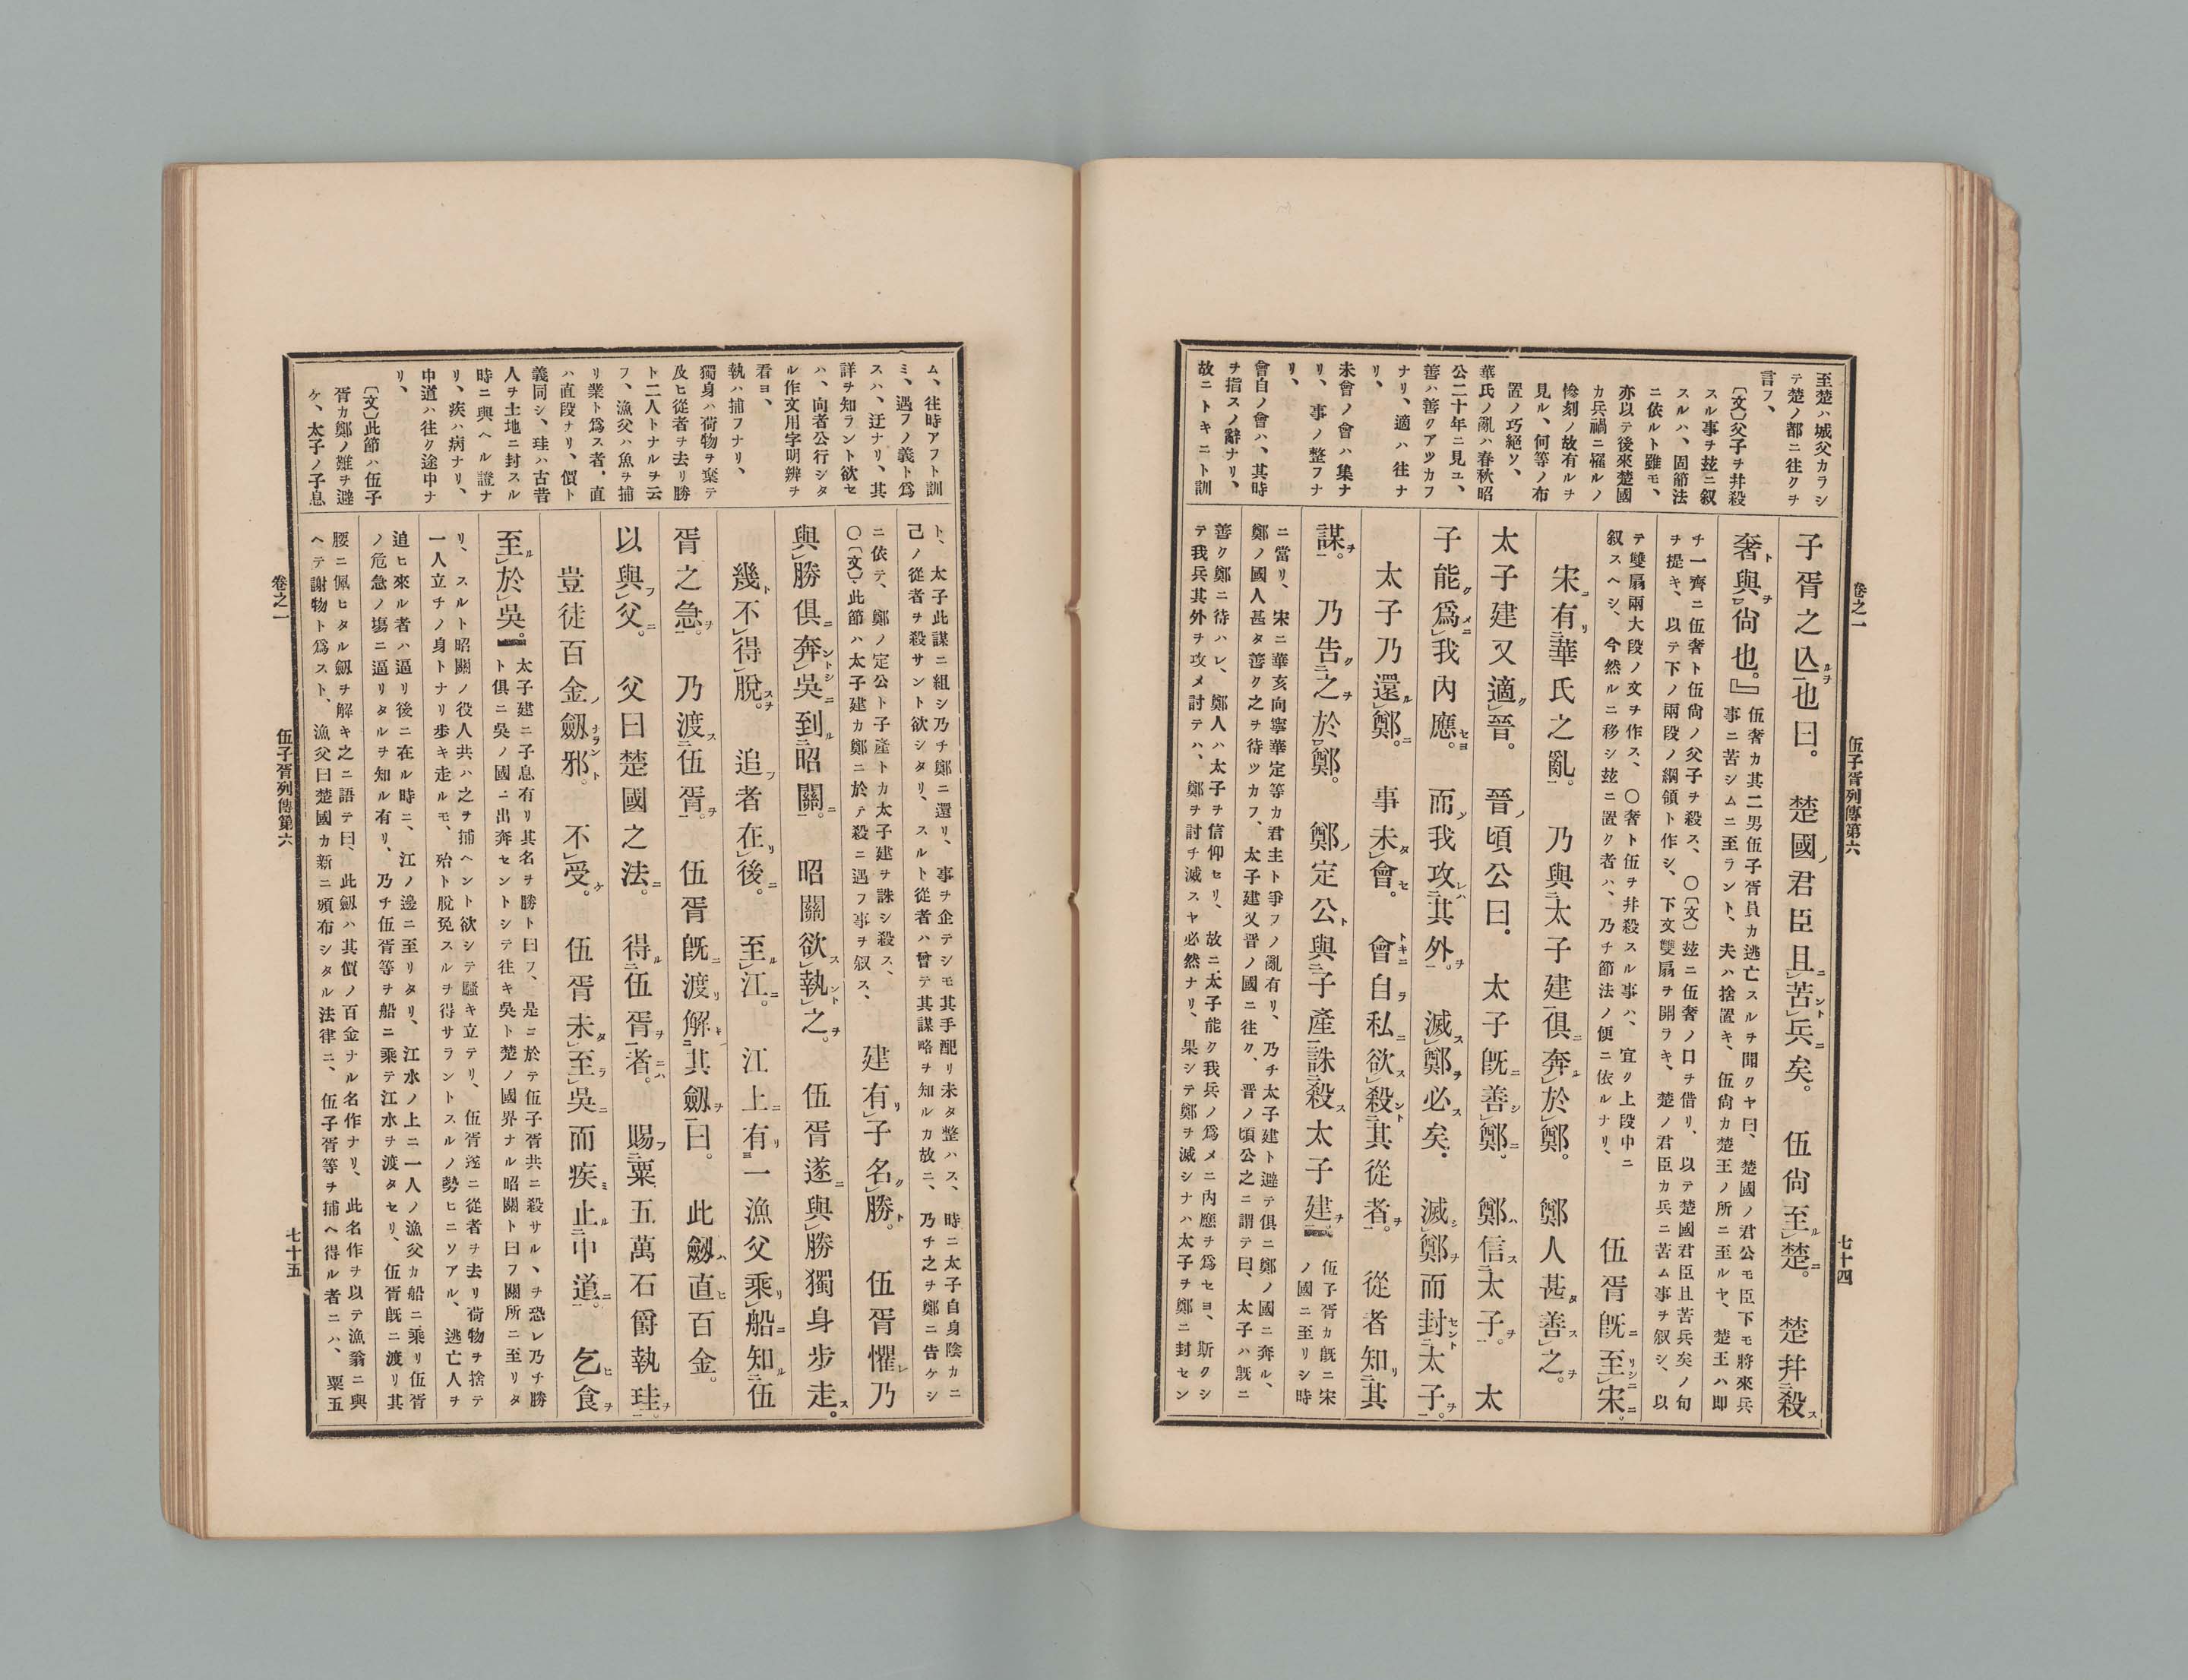 卷之一　伍子胥列傳第六　七十四
至楚ハ城父カラシ
テ楚ノ都ニ往クヲ
言フ、
〔文〕父子ヲ幷殺
スル事ヲ玆ニ叙
スルハ、固節法
ニ依ルト雖モ、
亦以テ後來楚國
カ兵禍ニ罹ルノ
慘刻ノ故有ルヲ
見ル、何等ノ布
置ノ巧絕ソ、
華氏ノ亂ハ春秋昭
公二十年ニ見ユ、
善ハ善クアツカフ
ナリ、適ハ往ナ
リ、
未會ノ會ハ集ナ
リ、事ノ整フナ
リ、
會自ノ會ハ、其時
ヲ指スノ辭ナリ、
故ニトキニト訓
子胥之亾也曰。楚國君臣且苦兵矣。伍尙至楚。楚幷殺
奢與尙也。』
伍奢カ其二男伍子胥員カ逃亡スルヲ聞クヤ曰、楚國ノ君公モ臣下モ將來兵
事ニ苦シムニ至ラント、夫ハ捨置キ、伍尙カ楚王ノ所ニ至ルヤ、楚王ハ卽
チ一齊ニ伍奢ト伍尙ノ父子ヲ殺ス、〇〔文〕玆ニ伍奢ノ口ヲ借リ、以テ楚國君臣且苦兵矣ノ句
ヲ提キ、以テ下ノ兩段ノ綱領ト作シ、下文雙扇ヲ開ラキ、楚ノ君臣カ兵ニ苦ム事ヲ叙シ、以
テ雙扇兩大段ノ文ヲ作ス、〇奢ト伍ヲ幷殺スル事ハ、宜ク上段中ニ
叙スヘシ、今然ルニ移シ玆ニ置ク者ハ、乃チ節法ノ便ニ依ルナリ、
伍胥旣至宋。
宋有華氏之亂。乃與太子建俱奔於鄭。鄭人甚善之。
太子建又適晉。晉頃公曰。太子旣善鄭。鄭信太子。太
子能爲我內應。而我攻其外。滅鄭必矣。滅鄭而封太子。
太子乃還鄭。事未會。會自私欲殺其從者。從者知其
謀。乃告之於鄭。鄭定公與子產誅殺太子建。
伍子胥カ旣ニ宋
ノ國ニ至リシ時
ニ當リ、宋ニ華亥向寧華定等カ君主ト爭フノ亂有リ、乃チ太子建ト避テ俱ニ鄭ノ國ニ奔ル、
鄭ノ國人甚タ善ク之ヲ待ツカフ、太子建又晉ノ國ニ往ク、晉ノ頃公之ニ謂テ曰、太子ハ旣ニ
善ク鄭ニ待ハレ、鄭人ハ太子ヲ信仰セリ、故ニ太子能ク我兵ノ爲メニ內應ヲ爲セヨ、斯クシ
テ我兵其外ヲ攻メ討テハ、鄭ヲ討チ滅スヤ必然ナリ、果シテ鄭ヲ滅シナハ太子ヲ鄭ニ封セン
ム、往時アフト訓
ミ、遇フノ義ト爲
スハ、迂ナリ、其
詳ヲ知ラント欲セ
ハ、向者公行シタ
ル作文用字明辨ヲ
看ヨ、
執ハ捕フナリ、
獨身ハ荷物ヲ棄テ
及ヒ從者ヲ去リ勝
ト二人トナルヲ云
フ、漁父ハ魚ヲ捕
リ業ト爲ス者、直
ハ直段ナリ、價ト
義同シ、珪ハ古昔
人ヲ土地ニ封スル
時ニ與ヘル證ナ
リ、疾ハ病ナリ、
中道ハ往ク途中ナ
リ、
〔文〕此節ハ伍子
胥カ鄭ノ難ヲ避
ケ、太子ノ子息
ト、太子此謀ニ組シ乃チ鄭ニ還リ、事ヲ企テシモ其手配リ未タ整ハス、時ニ太子自身陰カニ
己ノ從者ヲ殺サント欲シタリ、スルト從者ハ曾テ其謀略ヲ知ルカ故ニ、乃チ之ヲ鄭ニ告ケシ
ニ依テ、鄭ノ定公ト子產トカ太子建ヲ誅シ殺ス、
〇〔文〕此節ハ太子建カ鄭ニ於テ殺ニ遇フ事ヲ叙ス、
建有子名勝。伍胥懼乃
與勝俱奔吳到昭關。昭關欲執之。伍胥遂與勝獨身步走。
幾不得脫。追者在後。至江。江上有一漁父乘船知伍
胥之急。乃渡伍胥。伍胥旣渡解其劔曰。此劔直百金。
以與父。父曰楚國之法。得伍胥者。賜粟五萬石爵執珪。
豈徒百金劔邪。不受。伍胥未至吳而疾止中道。乞食
至於吳。
太子建ニ子息有リ其名ヲ勝ト曰フ、是ニ於テ伍子胥共ニ殺サルヽヲ恐レ乃チ勝
ト俱ニ吳ノ國ニ出奔セントシテ往キ吳ト楚ノ國界ナル昭關ト曰フ關所ニ至リタ
リ、スルト昭關ノ役人共ハ之ヲ捕ヘント欲シテ騷キ立テリ、伍胥遂ニ從者ヲ去リ荷物ヲ捨テ
一人立チノ身トナリ步キ走ルモ、殆ト脫免スルヲ得サラントスルノ勢ヒニソアル、逃亡人ヲ
追ヒ來ル者ハ逼リ後ニ在ル時ニ、江ノ邊ニ至リタリ、江水ノ上ニ一人ノ漁父カ船ニ乘リ伍胥
ノ危急ノ塲ニ逼リタルヲ知ル有リ、乃チ伍胥等ヲ船ニ乘テ江水ヲ渡タセリ、伍胥旣ニ渡リ其
腰ニ佩ヒタル劔ヲ解キ之ニ語テ曰、此劔ハ其價ノ百金ナル名作ナリ、此名作ヲ以テ漁翁ニ與
ヘテ謝物ト爲スト、漁父曰楚國カ新ニ頒布シタル法律ニ、伍子胥等ヲ捕ヘ得ル者ニハ、粟五
卷之一　伍子胥列傳第六　七十五